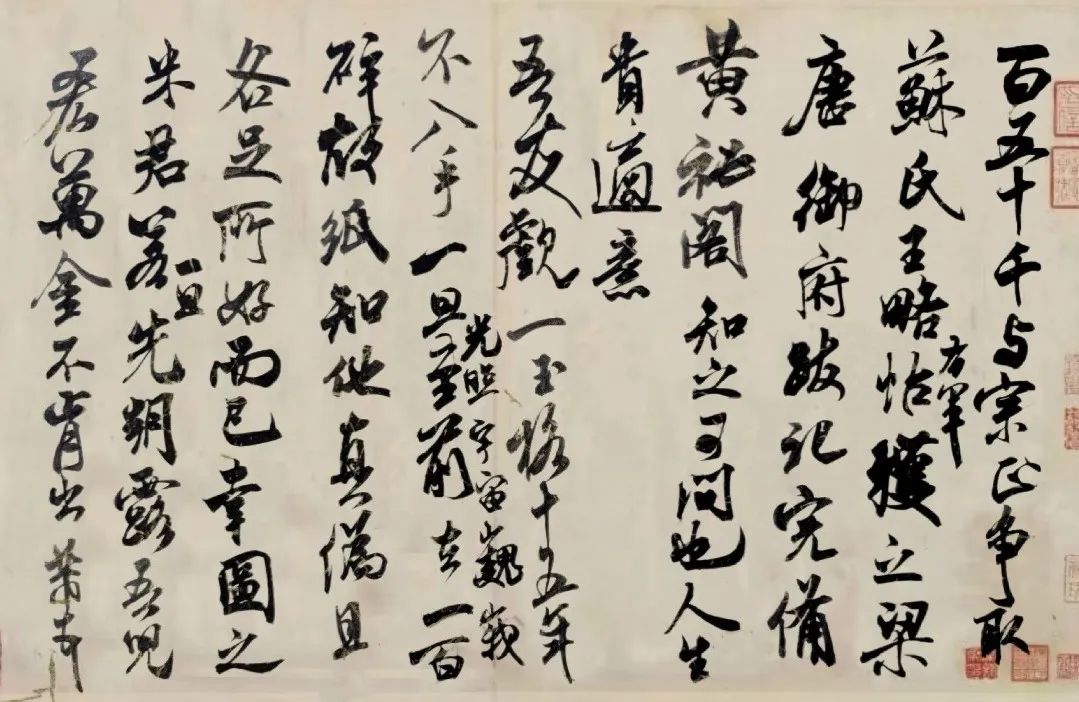 百五十千与宗正争取
蘇氏王略帖方罕獲之梁
唐御府跋記完備
黄祕閣知之可問也人生
貴適意
吾友觀一玉格十五年
不入手一旦光照宇宙巍峩至前去一百
碎故紙知他真偽且
各足所好而已幸圖之
米君若一旦先朝露吾兒
吝萬金不肯出芾書